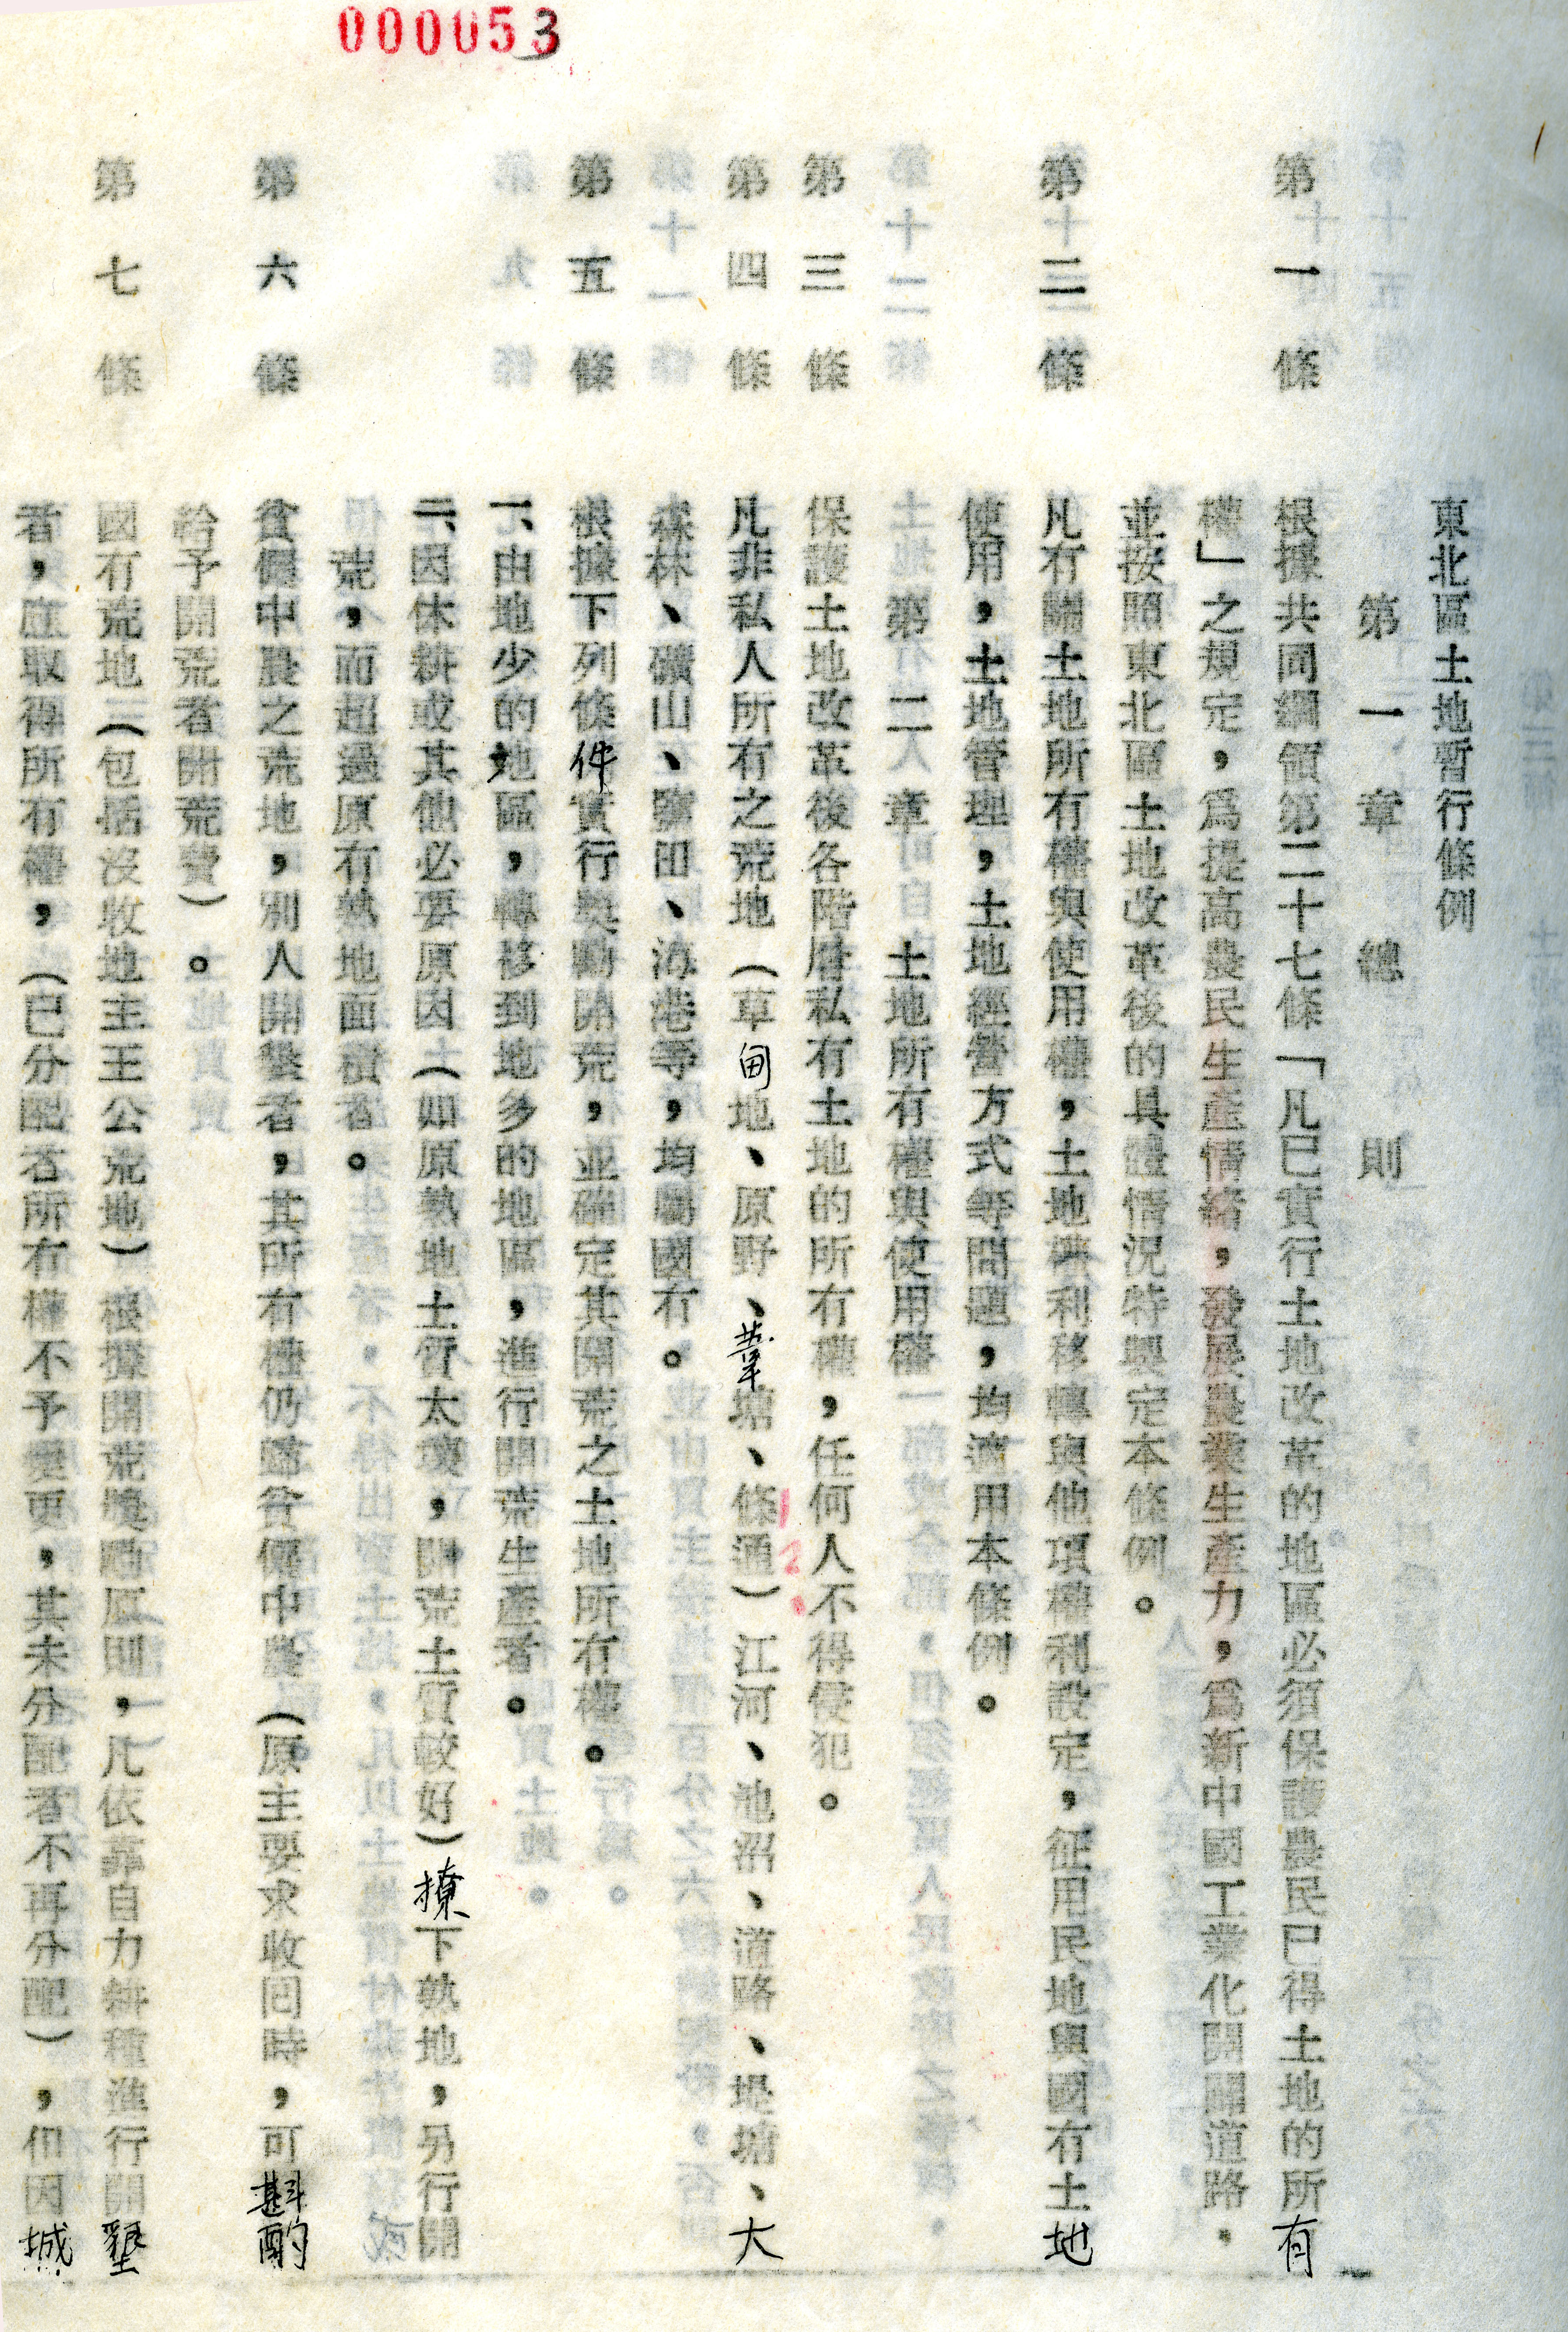 000053
東北區土地暫行條例
第一章 總則
第一條 根據共同綱領第二十七條「凡已實行土地改革的地區必須保護農民已得土地的所有
權」之規定，爲提高農民生產情緒，發展農業生產力，爲新中國工業化開闢道路．
並按照東北區土地改革後的具體情況特製定本條例。
第二條 凡有關土地所有權與使用權，土地權利移轉與他項權利設定，征用民地與國有土地
使用，土地管理，土地經營方式等問題，均適用本條例。
第二章 土地所有權與使用權
第三條 保護土地改革後各階層私有土地的所有權，任何人不得侵犯。
第四條 凡非私人所有之荒地（草甸地、原野、葦塘、條通）江河、池沼、道路、堤塘、大
森林、礦山、鹽田、海港等，均屬國有。
第五條 根據下列條件實行獎勵開荒，並確定其開荒之土地所有權。
一、由地少的地區，轉移到地多的地區，進行開荒生產者。
二、因休耕或其他必要原因（如原熟地土質太壞，開荒土質較好）撩下熟地，另行開
荒，而超過原有熟地面積者。
第六條 貧僱中農之荒地，別人開墾者，其所有權仍歸貧僱中農（原主要求收囘時，可斟酌
給予開荒者開荒費）。
第七條 國有荒地（包括沒收地主王公荒地）根據開荒獎勵原則，凡依靠自力耕種進行開墾
者，應取得所有權，（已分配者所有權不予變更，其未分配者不再分配），但因城